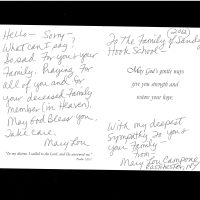 Hello — Sorry,
What can I say
So sad for you & your
Family. Praying for
all of you and for
your deceased Family
member (in Heaven).
May God Bless you.
Take care,
Mary Lou
"In my distress I called to the Lord, and He answered me"
Psalm 120:1
(2012)
To The Family of Sandy
Hook School—
May God's gentle ways
give you strength and
restore your hope.
With my deepest
Sympathy to you &
your Family —
from
Mary Lou Campone,
Rochester, NY